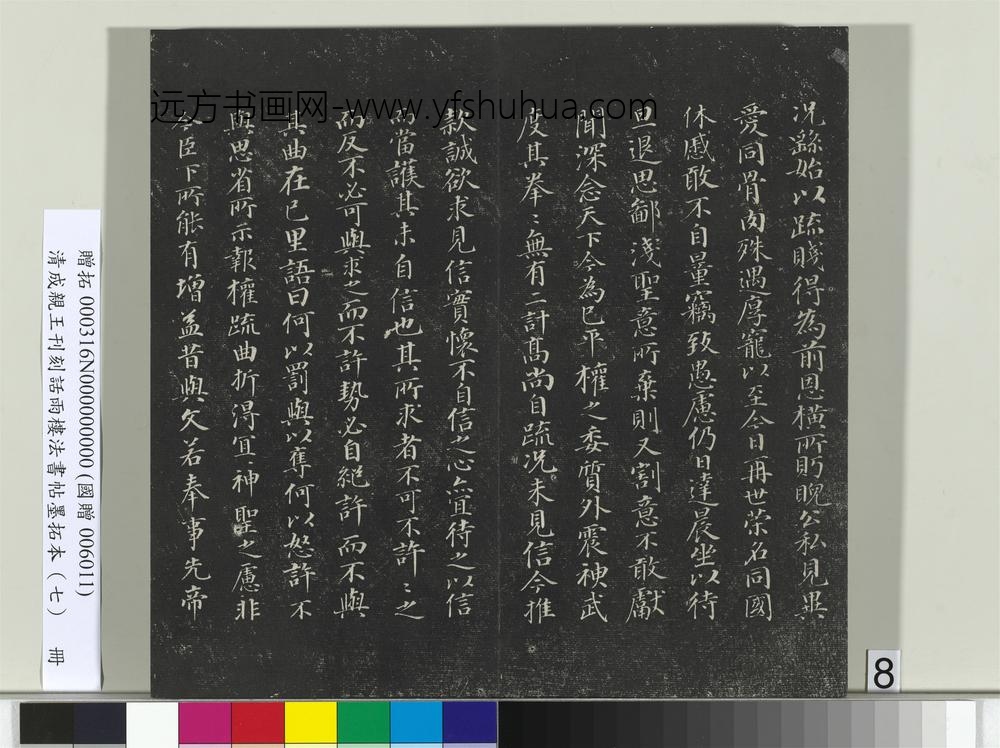 况繇始以疏賤得為前恩橫所盻睨公私見異
愛同骨肉殊遇厚寵以至今日再世荣名同國
休慼敢不自量竊致愚慮仍日達晨坐以待
旦退思鄙淺聖意所棄則又割意不敢獻
聞深念天下今為已平權之委質外震神武
度其拳〻無有二計高尚自疏况未見信今推
款誠欲求見信實懷不自信之心亦宜待之以信
而當護其未自信也其所求者不可不許〻之
而反不必可與求之而不許勢必自絕許而不與
其曲在己里語曰何以罰與以奪何以怒許不
與思省所示報權疏曲折得宜神聖之慮非
今臣下所能有增益昔與文若奉事先帝
远方书画网-www.yfshuhua.com
贈拓 000316N000000000 (國贈 006011)
清成親王刊刻話雨樓法書帖墨拓本（七） 冊
8